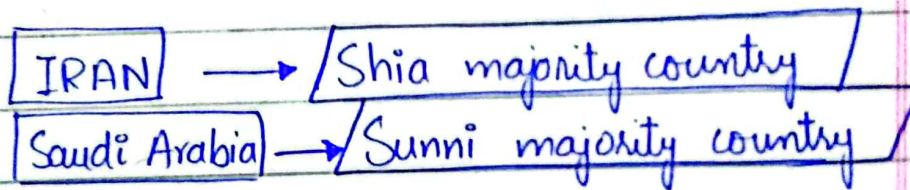 IRAN → Shia majority country
Saudi Arabia → Sunni majority country